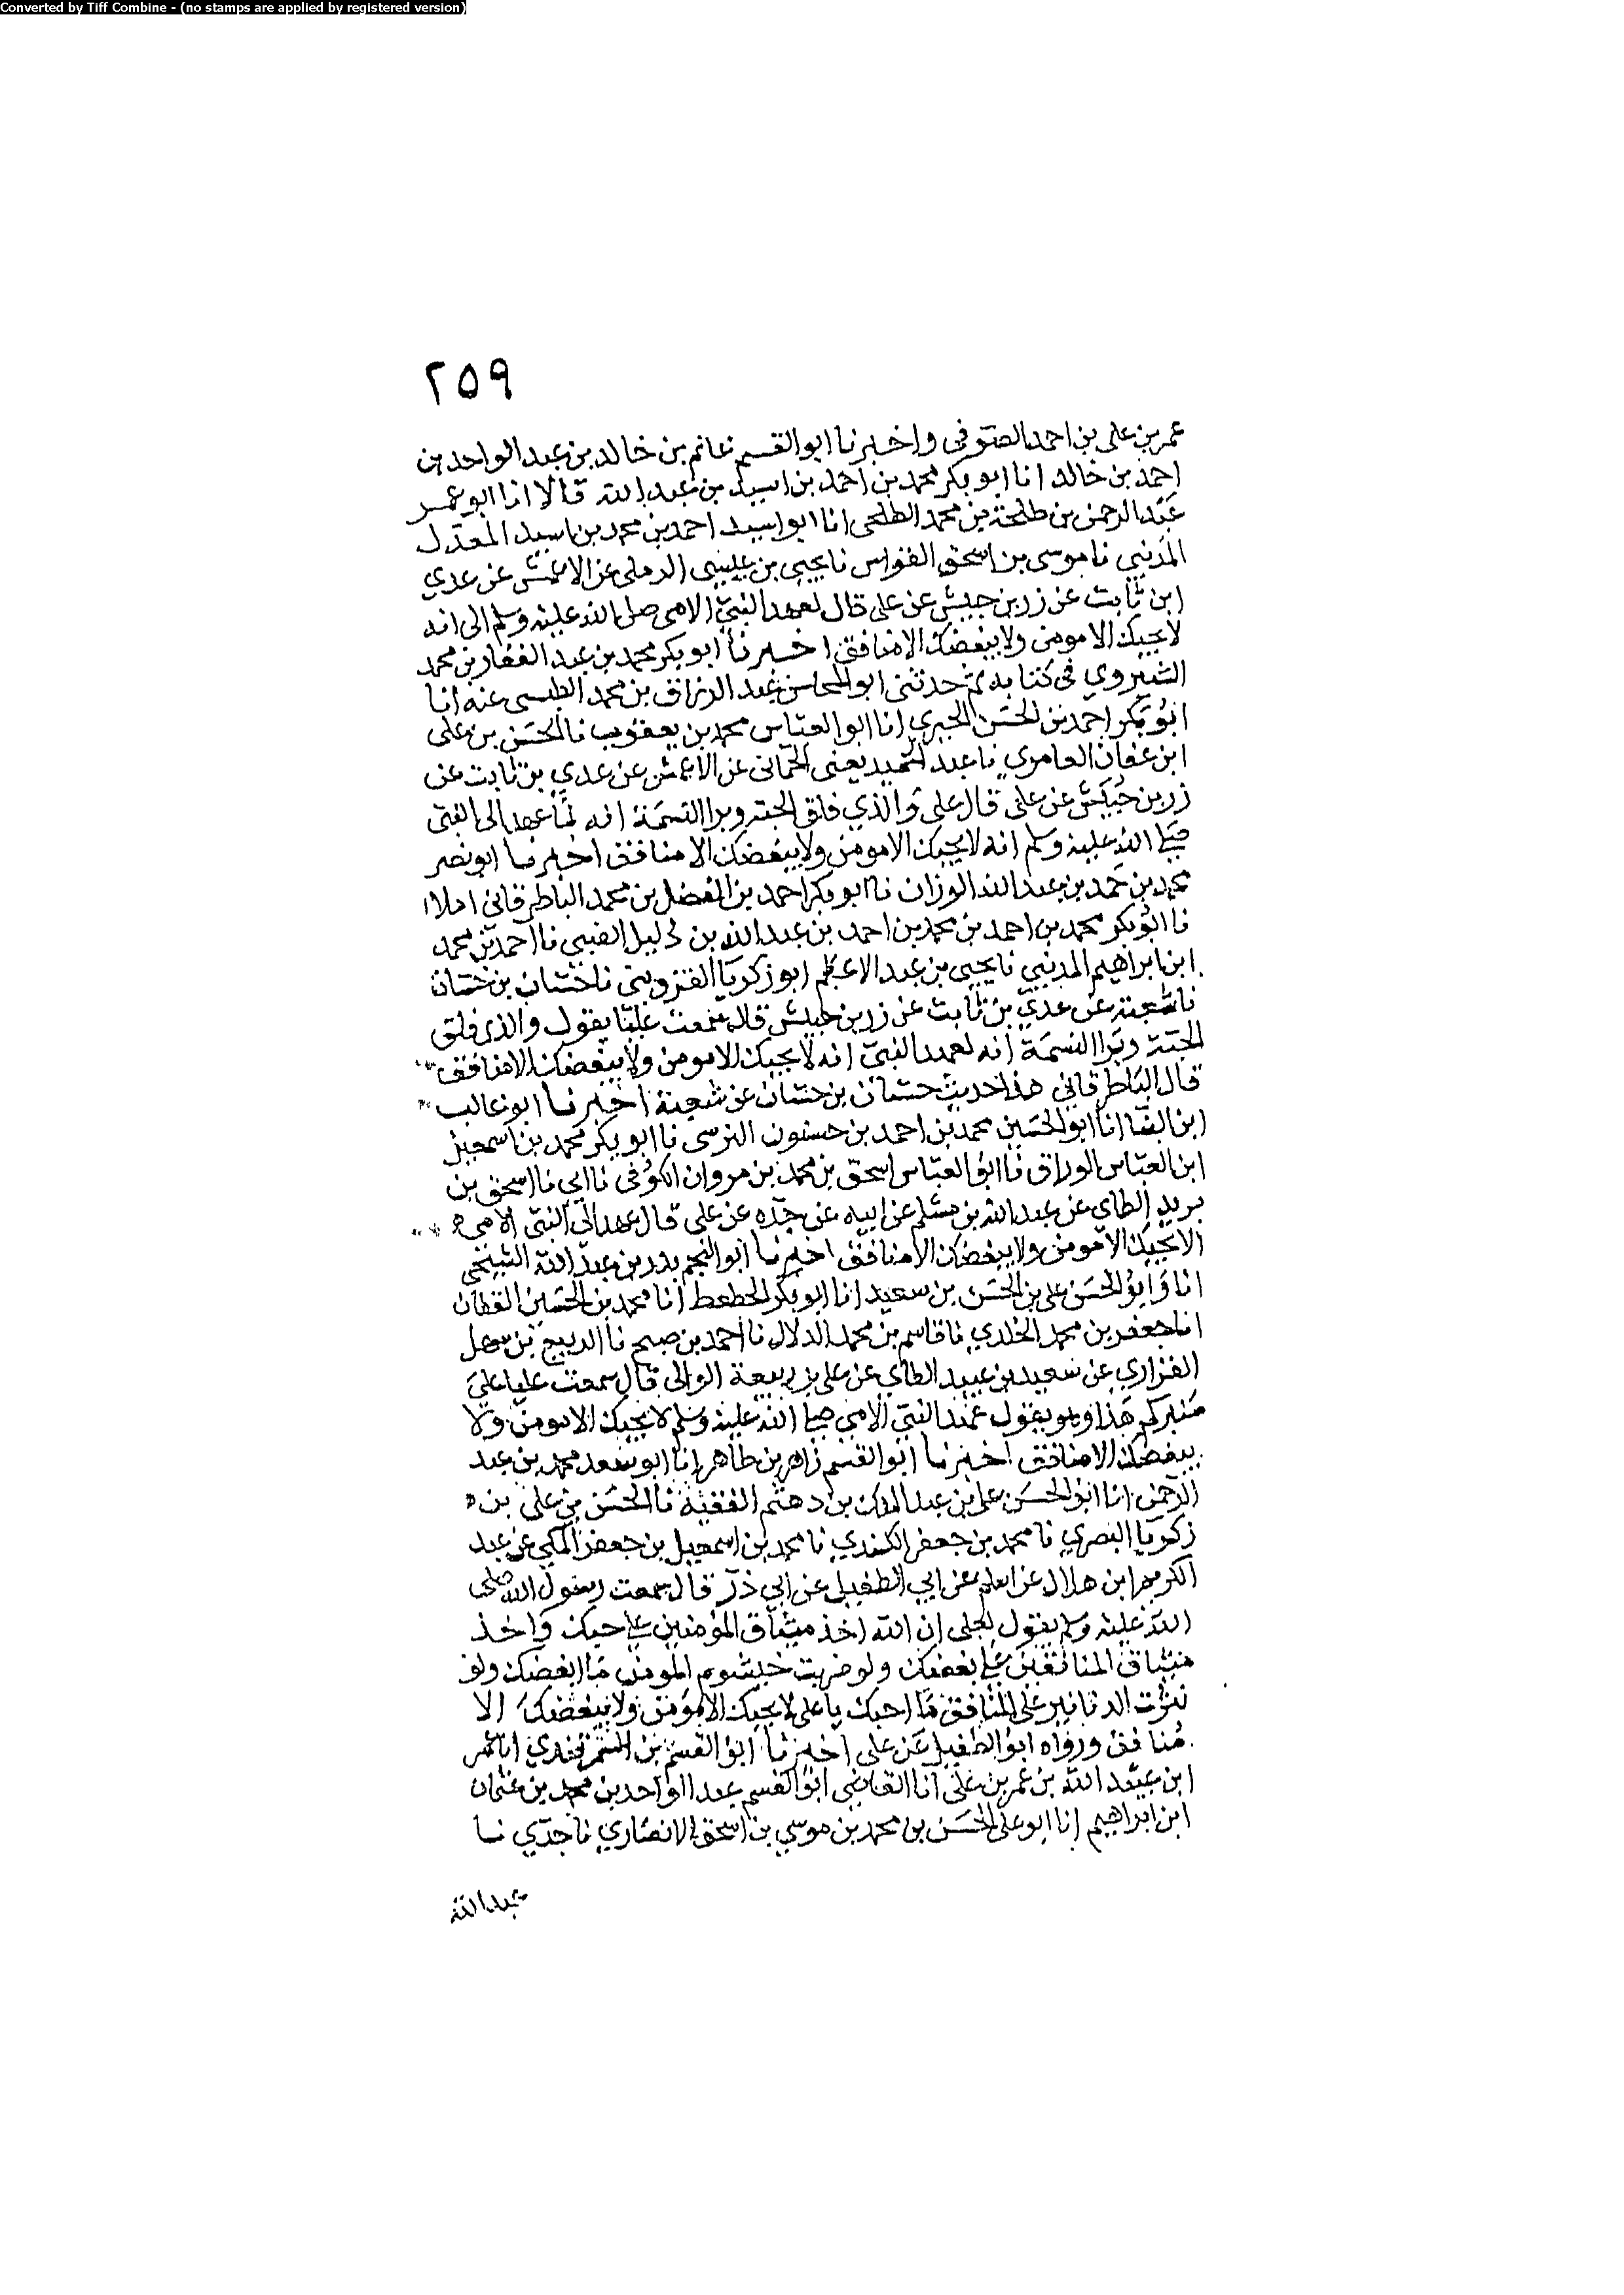 Converted by Tiff Combine - (no stamps are applied by registered version)
٢٥٩
عمر بن على بن احمد الصوفى واخبرنا ابو القسم غانم بن خالد بن عبد الواحد بن
احمد بن خالد انا ابو بكر محمد بن احمد بن اسيد بن عبد الله قالا انا ابو عمر
عبد الرحمن بن طلحة بن محمد الطلحى انا ابو اسيد احمد بن محمد بن اسيد المعدل
المدينى نا موسى بن اسحق القواس نا يحيى بن عيسى الرملى عن الاعمش عن عدي
ابن ثابت عن زر بن حبيش عن على قال لعهد النبى الامى صلى الله عليه وسلم الى انه
لا يحبك الا مومن ولا يبغضك الا منافق اخبرنا ابو بكر محمد بن عبد الغفار بن محمد
الشيروي فى كتابه ثم حدثنى ابو المحاسن عبد الرزاق بن محمد الطبسى عنه انا
ابو بكر احمد بن الحسن الحيري انا ابو العباس محمد بن يعقوب نا الحسن بن على
ابن عفان العامري نا عبد الحميد يعنى الحمانى عن الاعمش عن عدي بن ثابت عن
زر بن حبيش عن على قال على والذي فلق الحبة وبرا النسمة انه لما عهد الى النبى
صلى الله عليه وسلم انه لا يحبك الا مومن ولا يبغضك الا منافق اخبرنا ابو نصر
محمد بن حمد بن عبد الله الوزان نا ابو بكر احمد بن الفضل بن محمد الباطرقانى املاا
نا ابو بكر محمد بن احمد بن محمد بن احمد بن عبد الله بن دليل الضبى نا احمد بن محمد
ابن ابراهيم المدينى نا يحيى بن عبد الاعظم ابو زكريا القزوينى نا حسان بن حسان
نا شعبة عن عدي بن ثابت عن زر بن حبيش قال سمعت عليا يقول والذى فلق
الحبة وبرا النسمة انه لعهد النبى انه لا يحبك الا مومن ولا يبغضك الا منافق
قال الباطرقانى هذا حديث حسان بن حسان عن شعبة اخبرنا ابو غالب
ابن البنا انا ابو الحسين محمد بن احمد بن حسنون النرسى نا ابو بكر محمد بن اسمعيل
ابن العباس الوراق نا ابو العباس اسحق بن محمد بن مروان الكوفى نا ابى نا اسحق بن
يريد الطاى عن عبد الله بن مسلم عن ابيه عن جده عن على قال عهد الى النبى الامى
الا يحبك الا مومن ولا يبغضك الا منافق اخبرنا ابو النجم بدر بن عبد الله الشيخى
انا وابو الحسن على بن الحسن بن سعيد انا ابو بكر الخطيب انا محمد بن الحسين القطان
انا جعفر بن محمد الخلدي نا قاسم بن محمد الدلال نا احمد بن صبيح نا الربيع بن سهل
الفزاري عن سعيد بن عبيد الطاى عن على بن ربيعة الوالى قال سمعت عليا على
منبركم هذا وهو يقول عهد النبى الامى صلى الله عليه وسلم لا يحبك الا مومن ولا
يبغضك الا منافق اخبرنا ابو القسم زاهر بن طاهر انا ابو سعد محمد بن عبد
الرحمن انا ابو الحسن على بن عبد الملك بن دهثم الفقيه نا الحسن بن على بن
زكريا البصري نا محمد بن جعفر الكندي نا محمد بن اسمعيل بن جعفر المكى عن عبد
الكريم ابن هلال عن اسلم عن ابي الطفيل عن ابى ذر قال سمعت رسول الله صلى
الله عليه وسلم يقول لعلى ان الله اخذ ميثاق المؤمنين على حبك واخذ
ميثاق المنافقين على بغضك ولو ضربت خيشوم المومن ما ابغضك ولو
نثرت الدنانير على المنافق ما احبك يا على لا يحبك الا مومن ولا يبغضك الا
منافق ورواه ابو الطفيل عن على اخبرنا ابو القسم بن السمرقندي انا عمر
ابن عبيد الله بن عمر بن على انا القاضى ابو القسم عبد الواحد بن محمد بن عثمان
ابن ابراهيم انا ابو على الحسن بن محمد بن موسى بن اسحق الانصاري نا جدي نا
عبد الله